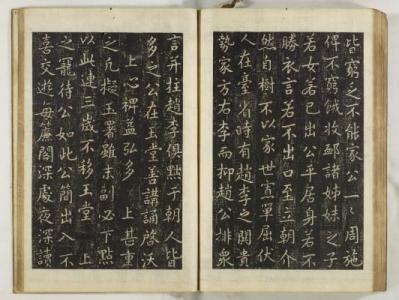 皆窮乏不能家公一一周施
俾不窮餓收卹諸姊妹之子
若女若己出公平居身若不
勝衣言若不出口至立朝介
然自樹不以家世害單屈伏
人在臺省時有趙李之鬩貴
勢家方右李而抑趙公排衆
言并拄趙李俱黜于朝人皆
多之公在玉堂善講誦啓沃
上心裨益弘多 上甚重
之凡擬玉署雖末副必下點
以此連三歲不移玉堂 上
之寵待公如此公簡出入不
喜交遊每簾閣深處夜深讀